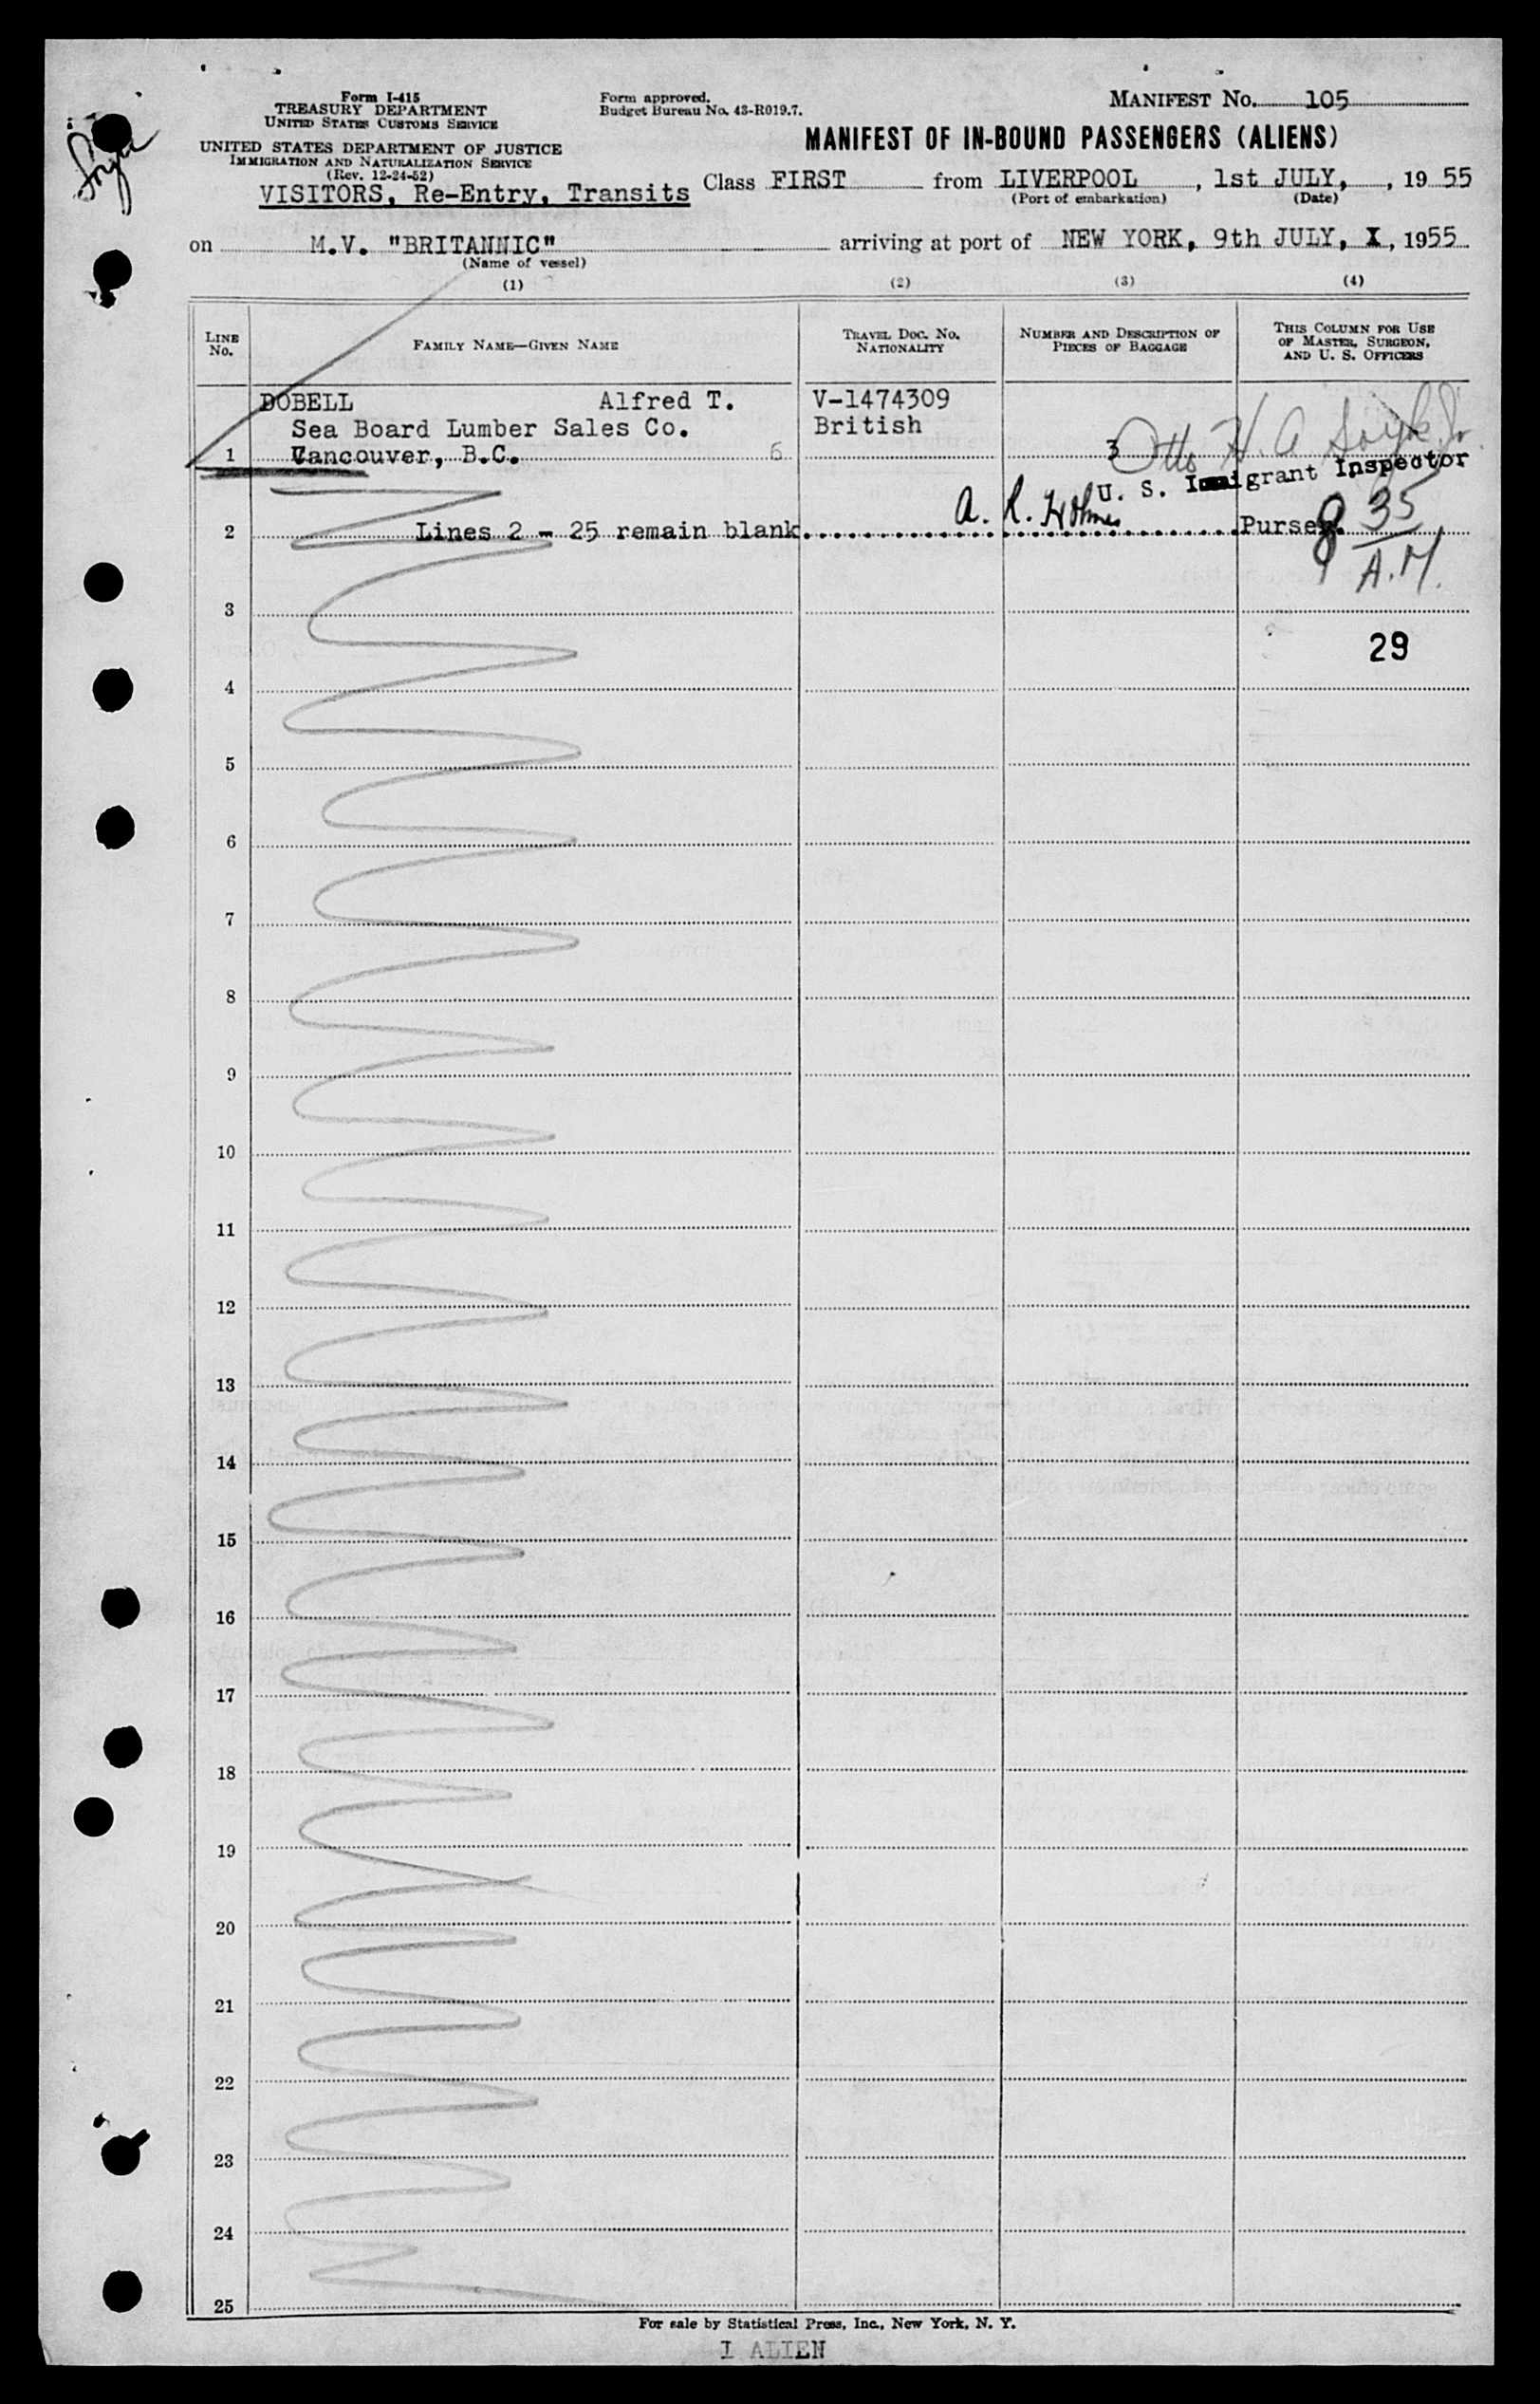 Form I-415
TREASURY DEPARTMENT
UNITED STATES CUSTOMS SERVICE
UNITED STATES DEPARTMENT OF JUSTICE
IMMIGRATION AND NATURALIZATION SERVICE
(Rev. 12-24-52)
VISITORS, Re-Entry, Transits
Form approved.
Budget Bureau No. 43-R019.7.
MANIFEST No. 105
MANIFEST OF IN-BOUND PASSENGERS (ALIENS)
Class FIRST from LIVERPOOL, 1st JULY, , 19 55
(Port of embarkation) (Date)
on M.V. "BRITANNIC" arriving at port of NEW YORK, 9th JULY, X, 1955
(Name of vessel)
(1) (2) (3) (4)
LINE No. FAMILY NAME—GIVEN NAME TRAVEL DOC. NO. NATIONALITY NUMBER AND DESCRIPTION OF PIECES OF BAGGAGE THIS COLUMN FOR USE OF MASTER, SURGEON, AND U. S. OFFICERS
DOBELL Alfred T. V-1474309
Sea Board Lumber Sales Co. British
1 Vancouver, B.C. 6 3 Otto H. A
U. S. Immigrant Inspector
2 Lines 2 - 25 remain blank A. R. Holmes Purser. 8 35
A.M.
3
29
4
5
6
7
8
9
10
11
12
13
14
15
16
17
18
19
20
21
22
23
24
25
For sale by Statistical Press, Inc., New York, N. Y.
1 ALIEN